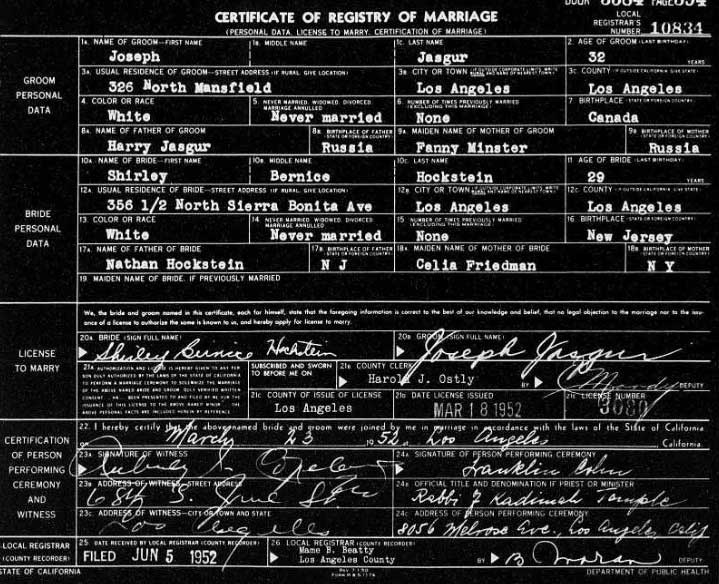 CERTIFICATE OF REGISTRY OF MARRIAGE
(PERSONAL DATA, LICENSE TO MARRY, CERTIFICATION OF MARRIAGE)
LOCAL REGISTRAR'S NUMBER 10834
GROOM PERSONAL DATA
1A. NAME OF GROOM—FIRST NAME 1B. MIDDLE NAME 1C. LAST NAME 2. AGE OF GROOM (LAST BIRTHDAY)
Joseph Jasgur 32 YEARS
3A. USUAL RESIDENCE OF GROOM—STREET ADDRESS (IF RURAL GIVE LOCATION) 3B. CITY OR TOWN 3C. COUNTY
326 North Mansfield Los Angeles Los Angeles
4. COLOR OR RACE 5. NEVER MARRIED, WIDOWED, DIVORCED, MARRIAGE ANNULLED 6. NUMBER OF TIMES PREVIOUSLY MARRIED (EXCLUDING THIS MARRIAGE) 7. BIRTHPLACE (STATE OR FOREIGN COUNTRY)
White Never married None Canada
8A. NAME OF FATHER OF GROOM 8B. BIRTHPLACE OF FATHER (STATE OR FOREIGN COUNTRY) 9A. MAIDEN NAME OF MOTHER OF GROOM 9B. BIRTHPLACE OF MOTHER (STATE OR FOREIGN COUNTRY)
Harry Jasgur Russia Fanny Minster Russia
BRIDE PERSONAL DATA
10A. NAME OF BRIDE—FIRST NAME 10B. MIDDLE NAME 10C. LAST NAME 11. AGE OF BRIDE (LAST BIRTHDAY)
Shirley Bernice Hockstein 29 YEARS
12A. USUAL RESIDENCE OF BRIDE—STREET ADDRESS (IF RURAL GIVE LOCATION) 12B. CITY OR TOWN 12C. COUNTY
356 1/2 North Sierra Bonita Ave Los Angeles Los Angeles
13. COLOR OR RACE 14. NEVER MARRIED, WIDOWED, DIVORCED, MARRIAGE ANNULLED 15. NUMBER OF TIMES PREVIOUSLY MARRIED (EXCLUDING THIS MARRIAGE) 16. BIRTHPLACE (STATE OR FOREIGN COUNTRY)
White Never married None New Jersey
17A. NAME OF FATHER OF BRIDE 17B. BIRTHPLACE OF FATHER (STATE OR FOREIGN COUNTRY) 18A. MAIDEN NAME OF MOTHER OF BRIDE 18B. BIRTHPLACE OF MOTHER (STATE OR FOREIGN COUNTRY)
Nathan Hockstein N J Celia Friedman N Y
19. MAIDEN NAME OF BRIDE, IF PREVIOUSLY MARRIED
LICENSE TO MARRY
We, the bride and groom named in this certificate, each for himself, state that the foregoing information is correct to the best of our knowledge and belief, that no legal objection to the marriage nor to the issu-
ance of a license to authorize the same is known to us, and hereby apply for license to marry.
20A. BRIDE (SIGN FULL NAME) 20B. GROOM (SIGN FULL NAME)
Shirley Bernice Hockstein Joseph Jasgur
SUBSCRIBED AND SWORN TO BEFORE ME ON 21B. COUNTY CLERK
Harold J. Ostly BY DEPUTY
21C. COUNTY OF ISSUE OF LICENSE 21D. DATE LICENSE ISSUED 21E. LICENSE NUMBER
Los Angeles MAR 18 1952 3080
CERTIFICATION OF PERSON PERFORMING CEREMONY AND WITNESS
22. I hereby certify that the above-named bride and groom were joined by me in marriage in accordance with the laws of the State of California
on March 23 1952, at Los Angeles California.
23A. SIGNATURE OF WITNESS 24A. SIGNATURE OF PERSON PERFORMING CEREMONY
Franklin Cohn
23B. ADDRESS OF WITNESS—STREET ADDRESS 24B. OFFICIAL TITLE AND DENOMINATION IF PRIEST OR MINISTER
Rabbi Kadimah Temple
23C. ADDRESS OF WITNESS—CITY OR TOWN AND STATE 24C. ADDRESS OF PERSON PERFORMING CEREMONY
Los Angeles 8056 Melrose Ave., Los Angeles, Calif
LOCAL REGISTRAR (COUNTY RECORDER)
25. DATE RECEIVED BY LOCAL REGISTRAR (COUNTY RECORDER) 26. LOCAL REGISTRAR (COUNTY RECORDER)
FILED JUN 5 1952 Mame B. Beatty
Los Angeles County BY DEPUTY
STATE OF CALIFORNIA DEPARTMENT OF PUBLIC HEALTH